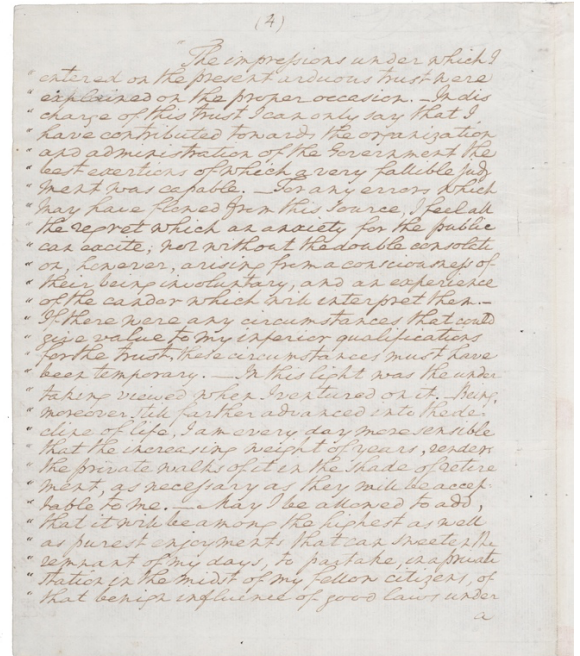 (4)
" The impressions under which I
" entered on the present arduous trust were
" explained on the proper occasion. — In dis
" charge of this trust I can only say that I
" have contributed towards the organization
" and administration of the Government the
" best exertions of which a very fallible judg
" ment was capable. — For any errors which
" may have flowed from this source, I feel all
" the regret which an anxiety for the public
" can excite; not without the double consolati
" on, however, arising from a consciousness of
" their being involuntary, and an experience
" of the candor which will interpret them. —
" If there were any circumstances that could
" give value to my inferior qualifications
" for the trust, these circumstances must have
" been temporary. — In this light was the under
" taking viewed when I ventured on it. — Being,
" moreover still farther advanced into the de
" cline of life, I am every day more sensible
" that the increasing weight of years, renders
" the private walks of it in the shade of retire
" ment, as necessary as they will be accep
" table to me. — May I be allowed to add,
" that it will be among the highest as well
" as purest enjoyments that can sweeten the
" remnant of my days, to partake, in a private
" station in the midst of my fellow citizens, of
" that benign influence of good laws under
a